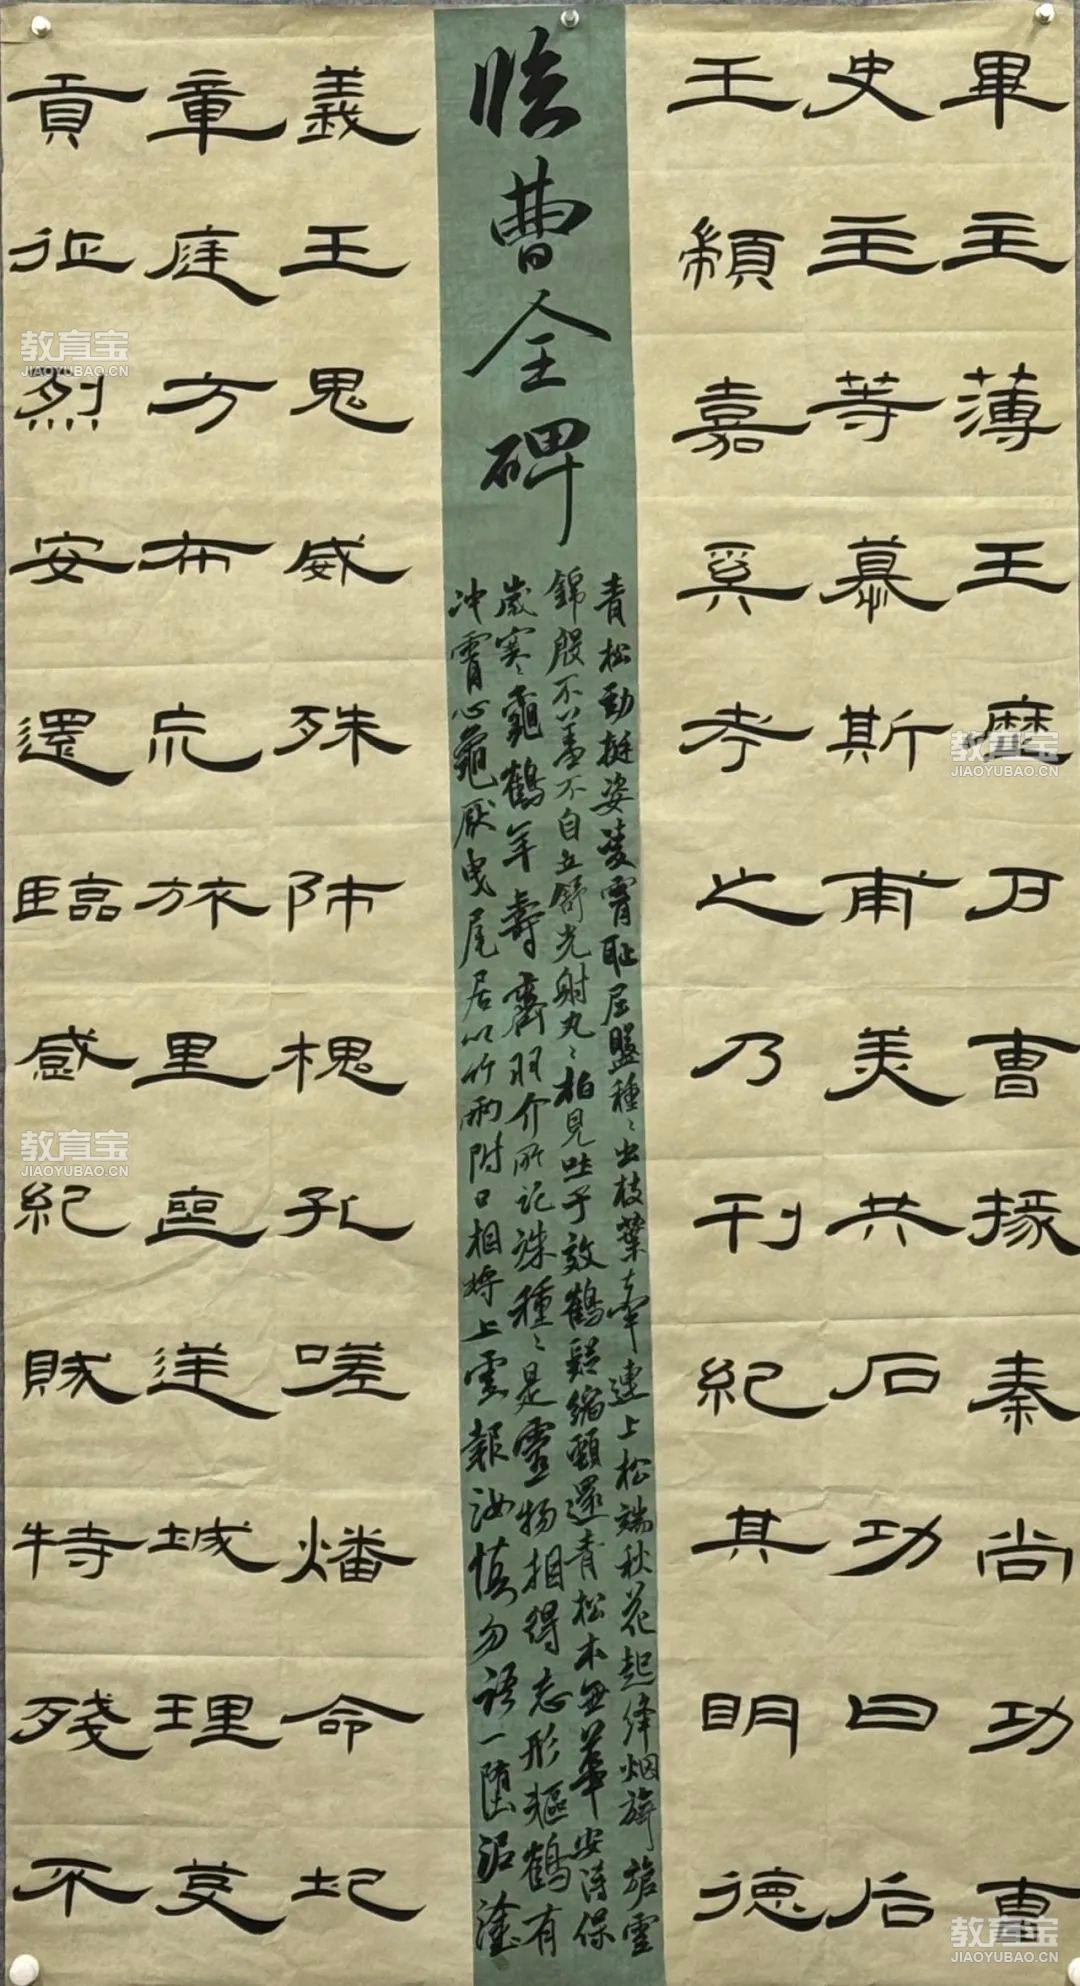 畢主薄王歷戶曹掾秦尚功曹
史主等慕斯甫美共石功曰后
王顓嘉奚考之乃刊紀其明德
臨曹全碑
青松勁挺姿凌霄恥屈盤種〻出枝葉牽連上松端秋花起絳烟旖旎雲
錦殷不羞不自立舒光射丸〻柏見吐子效鶴疑縮頸還青松本無華安得保
歲寒〻龜鶴年壽齊羽介所記誅種〻是靈物相得忘形軀鶴有
冲霄心龜厭曳尾居以竹兩附口相將上雲報汝慎勿語一墮泥塗
義王鬼威殊師槐孔嗟燔命圮
章庭方布荒旅里喪逆城理芟
貢征烈安還臨感紀賊特殘不
教育宝
JIAOYUBAO.CN
教育宝
JIAOYUBAO.CN
教育宝
JIAOYUBAO.CN
教育宝
JIAOYUBAO.CN